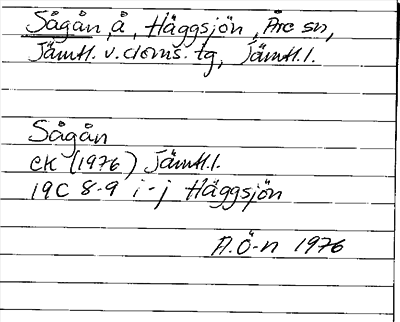 Sågån, å, Häggsjön, Åre sn,
Jämtl. v. doms. tg, Jämtl. l.
Sågån
EK (1976) Jämtl. l.
19C 8-9 i-j Häggsjön
A.Ö-n 1976